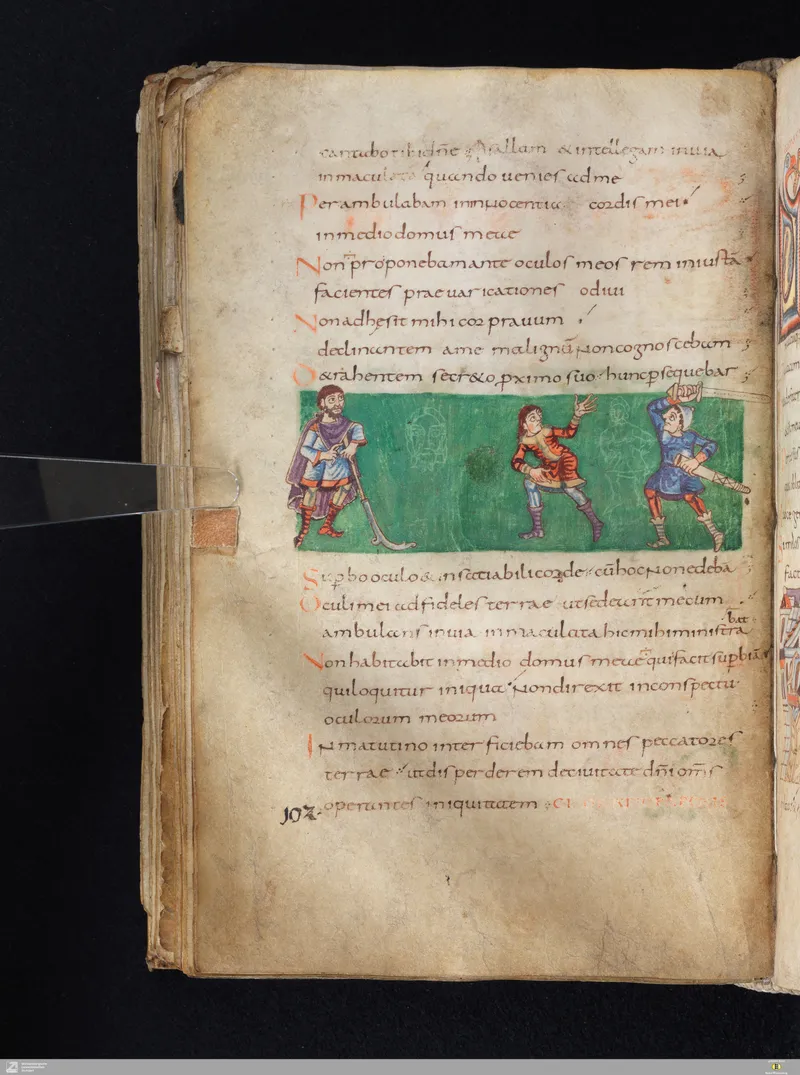 cantabo tibi dn̄e psallam & intellegam inuia
inmaculata quando uenies adme
Perambulabam ininnocentia cordis mei
inmedio domus meae
Non proponebam ante oculos meos rem iniustā
facientes praeuaricationes odiui
Non adhesit mihi cor prauum
declinantem ame malignū non cognoscebam
D&rahentem secr&o ꝓximo suo hunc ꝑsequebar
Suꝑbo oculo & insatiabili corde cū hoc non edebā
Oculi mei adfideles terrae utsedeant mecum
ambulans inuia inmaculata hic mihi ministrabat
Non habitabit inmedio domus meae qui facit suꝑbiā
qui loquitur iniqua non direxit inconspectu
oculorum meorum
In matutino interficiebam omnes peccatores
terrae ut disperderem deciuitate dn̄i omīs
102. operantes iniquitatem